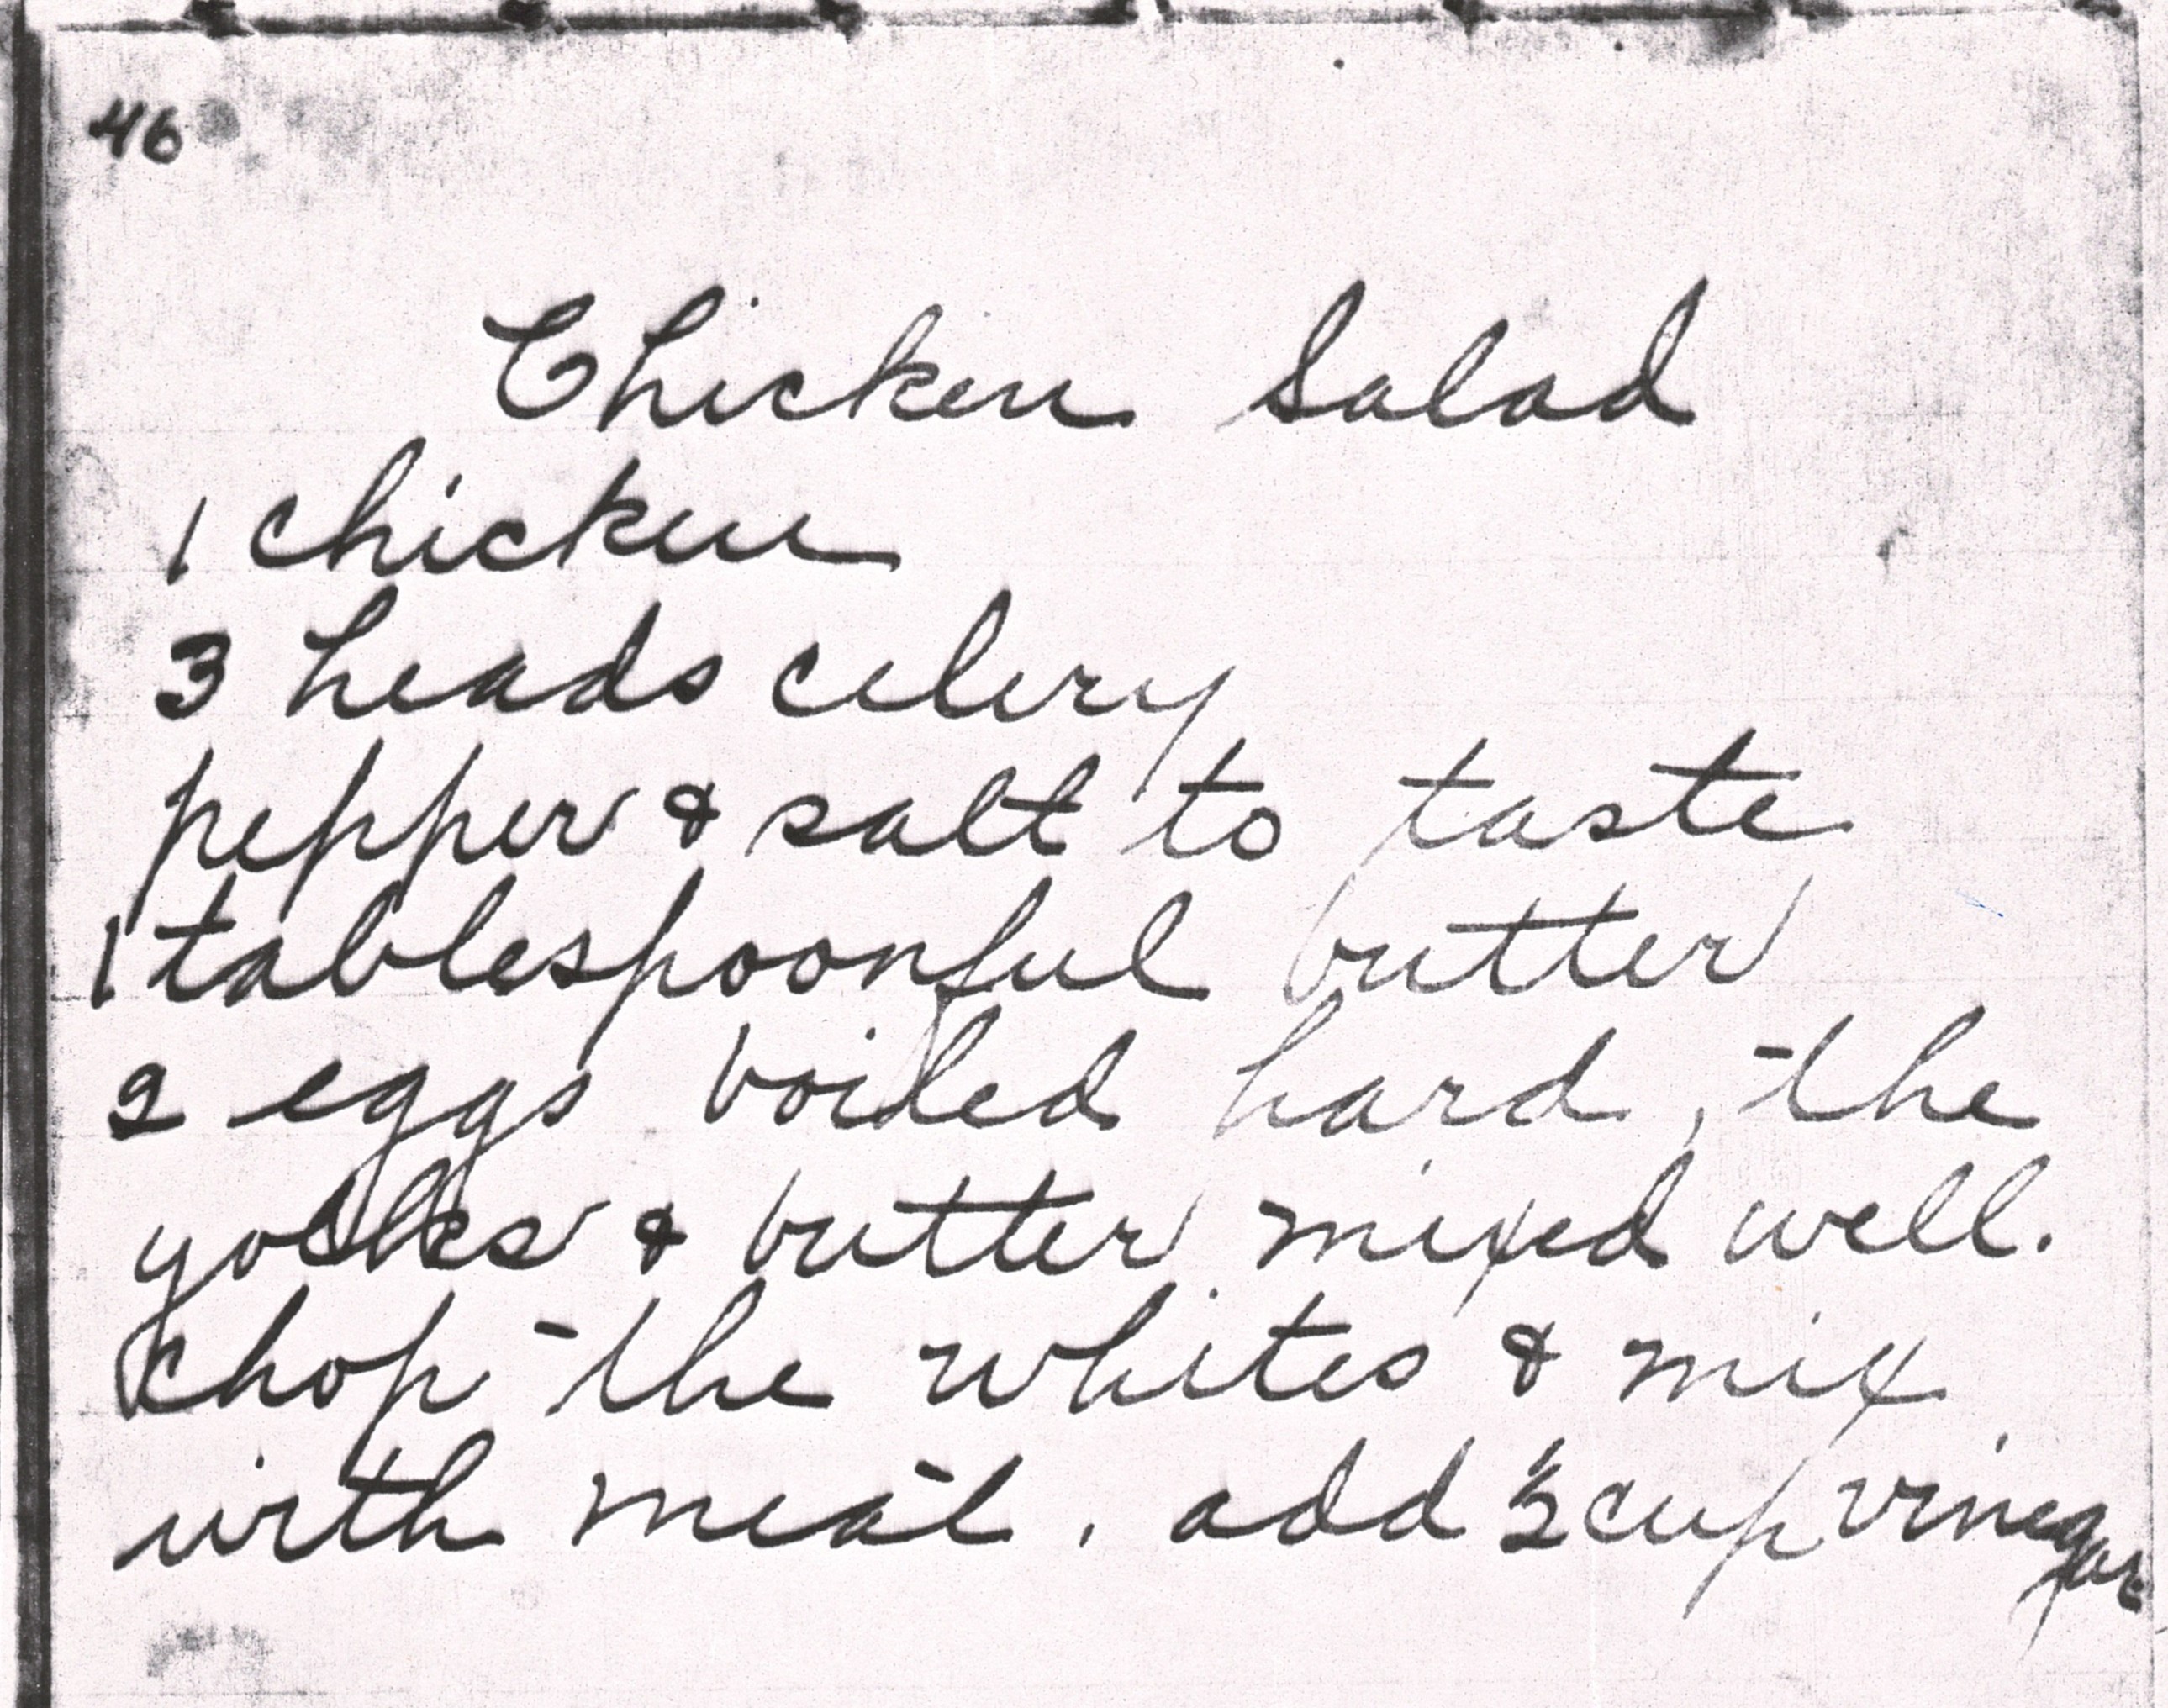 46
Chicken Salad
1 chicken
3 heads celery
pepper & salt to taste
1 tablespoonful butter
2 eggs boiled hard, the
yolks & butter mixed well.
Chop the whites & mix
with meat. add ½ cup vinegar